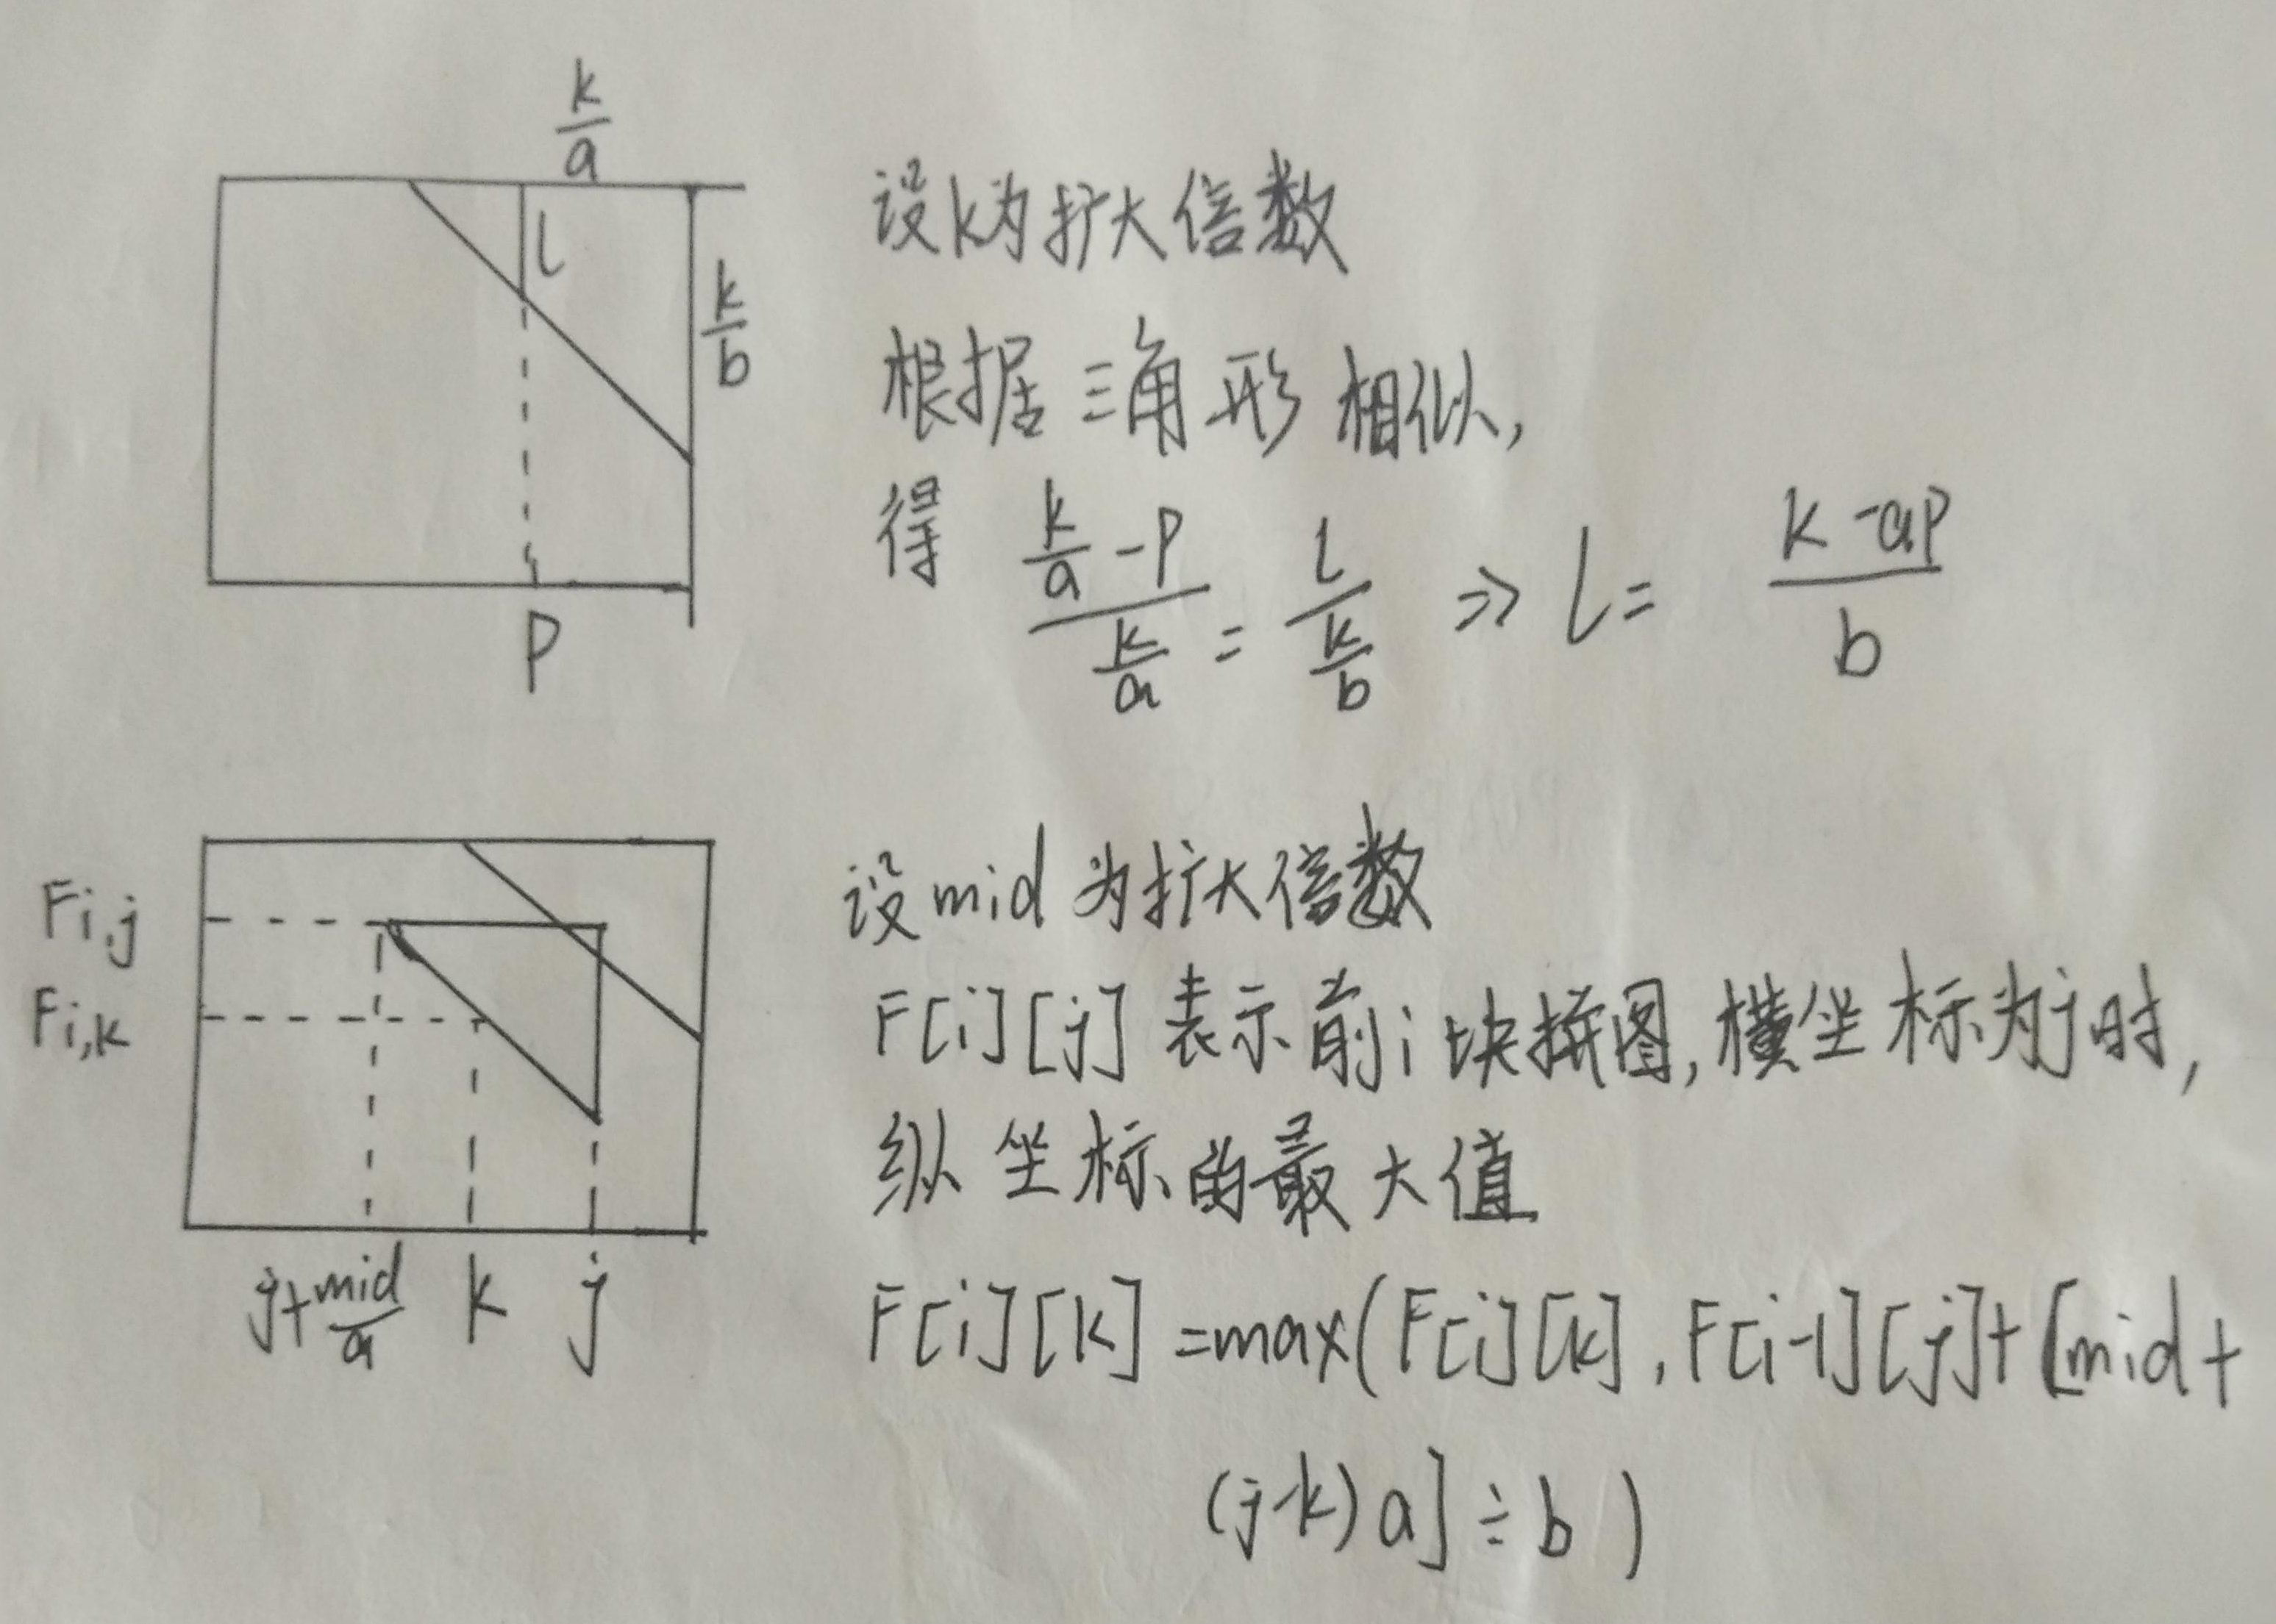 k/a
l
k/b
P
设k为扩大倍数
根据三角形相似,
得 (k/a -P)/(k/a) = l/(k/b) => l= (k-aP)/b
Fi,j
Fi,k
j+mid/a k j
设mid为扩大倍数
F[i][j]表示前i块拼图,横坐标为j时,
纵坐标的最大值
F[i][k]=max(F[i][k],F[i-1][j]+[mid+
(j-k)a]÷b)